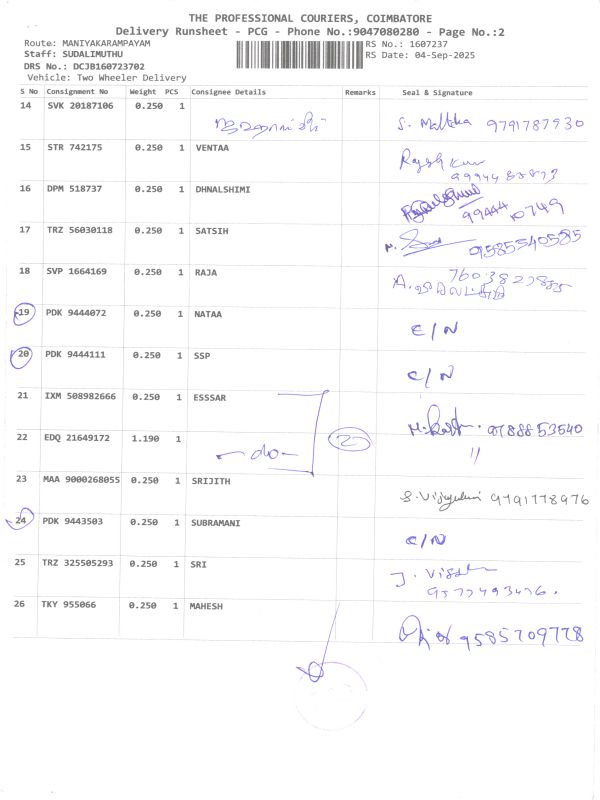 THE PROFESSIONAL COURIERS, COIMBATORE
Delivery Runsheet - PCG - Phone No.:9047080280 - Page No.:2
Route: MANIYAKARAMPAYAM RS No.: 1607237
Staff: SUDALIMUTHU RS Date: 04-Sep-2025
DRS No.: DCJB160723702
Vehicle: Two Wheeler Delivery
S No Consignment No Weight PCS Consignee Details Remarks Seal & Signature
14 SVK 20187106 0.250 1 S. 9791787930
15 STR 742175 0.250 1 VENTAA
16 DPM 518737 0.250 1 DHNALSHIMI 99444 10749
17 TRZ 56030118 0.250 1 SATSIH 9585540585
18 SVP 1664169 0.250 1 RAJA A.
19 PDK 9444072 0.250 1 NATAA C/N
20 PDK 9444111 0.250 1 SSP C/N
21 IXM 508982666 0.250 1 ESSSAR 9788853540
22 EDQ 21649172 1.190 1 -do- 2 "
23 MAA 9000268055 0.250 1 SRIJITH 9791778976
24 PDK 9443503 0.250 1 SUBRAMANI C/N
25 TRZ 325505293 0.250 1 SRI J.
26 TKY 955066 0.250 1 MAHESH 9585709778